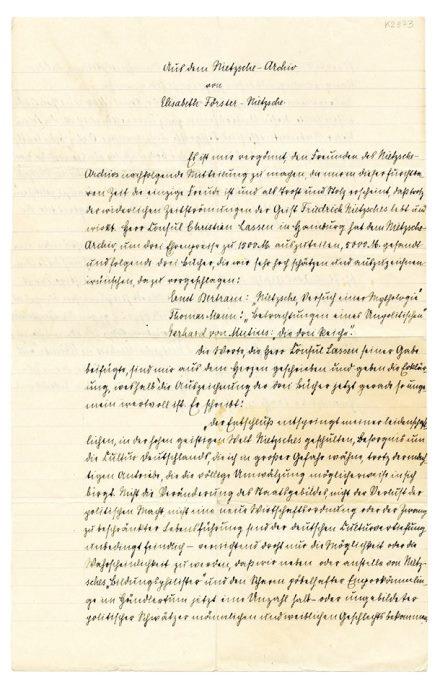 K2573
Aus dem Nietzsche-Archiv
von
Elisabeth Förster-Nietzsche.
Es ist mir vergönnt, den Freunden des Nietzsche-
Archivs nachfolgende Mitteilung zu machen, die mir in dieser furchtba-
ren Zeit die einzige Freude ist und als Trost und Stolz erscheint, daß trotz
der widerlichen Zeitströmungen der Geist Friedrich Nietzsches lebt und
wirkt. Herr Consul Christian Lassen in Hamburg hat dem Nietzsche-
Archiv, um drei Ehrenpreise zu auszuteilen, gesandt
und folgende drei Bücher, die wir sehr hoch schätzen und ausgezeichnet
wünschen, dazu vorgeschlagen:
Ernst Bertram: „Nietzsche, Versuch einer Mythologie"
Thomas Mann: „Betrachtungen eines Unpolitischen"
Gerhard von Mutius: „Die drei Reiche".
Die Worte, die Herr Consul Lassen seiner Gabe
beifügte, sind mir aus dem Herzen geschrieben und geben die Erklär-
ung, weshalb die Auszeichnung der drei Bücher jetzt gerade so unge-
mein wertvoll ist. Er schreibt:
„Der Entschluß entspringt meiner leidenschaft-
lichen, in der hohen geistigen Welt Nietzsches geschulten, Besorgnis um
die Cultur Deutschlands, die ich in großer Gefahr wähne, trotz der mäch-
tigen Antriebe, die die völlige Umwälzung möglicherweise in sich
birgt. Nicht die Veränderung des Staatsgebildes, nicht der Verlust der
politischen Macht, nicht eine neue Wirtschaftsordnung oder der Zwang
zu beschränkter Lebensführung sind der deutschen Culturvertiefung
unbedingt feindlich – vernichtend droht nur die Möglichkeit oder die
Wahrscheinlichkeit zu werden, daß wir neben oder anstelle von Nietz-
sches „Bildungsphilister" und den Scharen pöbelhafter Emporkömmlin-
ge im Händlertum jetzt eine Unzahl halb- oder ungebildeter
politischer Schwätzer männlichen und weiblichen Geschlechts bekommen,